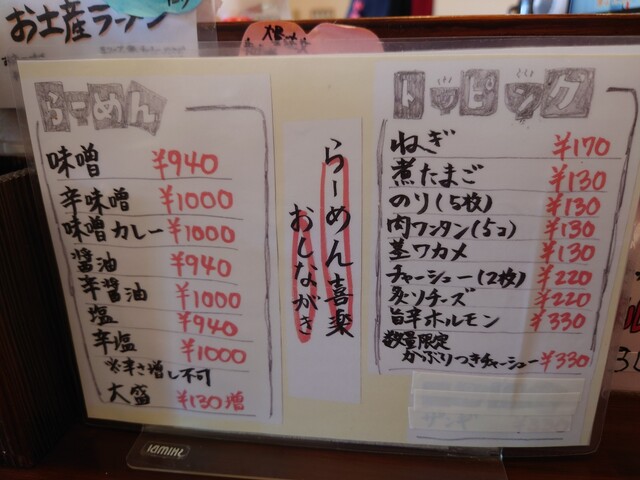 お土産ラーメン
らーめん
味噌 ¥940
辛味噌 ¥1000
味噌カレー ¥1000
醤油 ¥940
辛醤油 ¥1000
塩 ¥940
辛塩 ¥1000
※辛さ増し不可
大盛 ¥130増
らーめん喜楽
おしながき
トッピング
ねぎ ¥170
煮たまご ¥130
のり(5枚) ¥130
肉ワンタン(5コ) ¥130
茎ワカメ ¥130
チャーシュー(2枚) ¥220
炙りチーズ ¥220
旨辛ホルモン ¥330
数量限定
かぶりつきチャーシュー ¥330